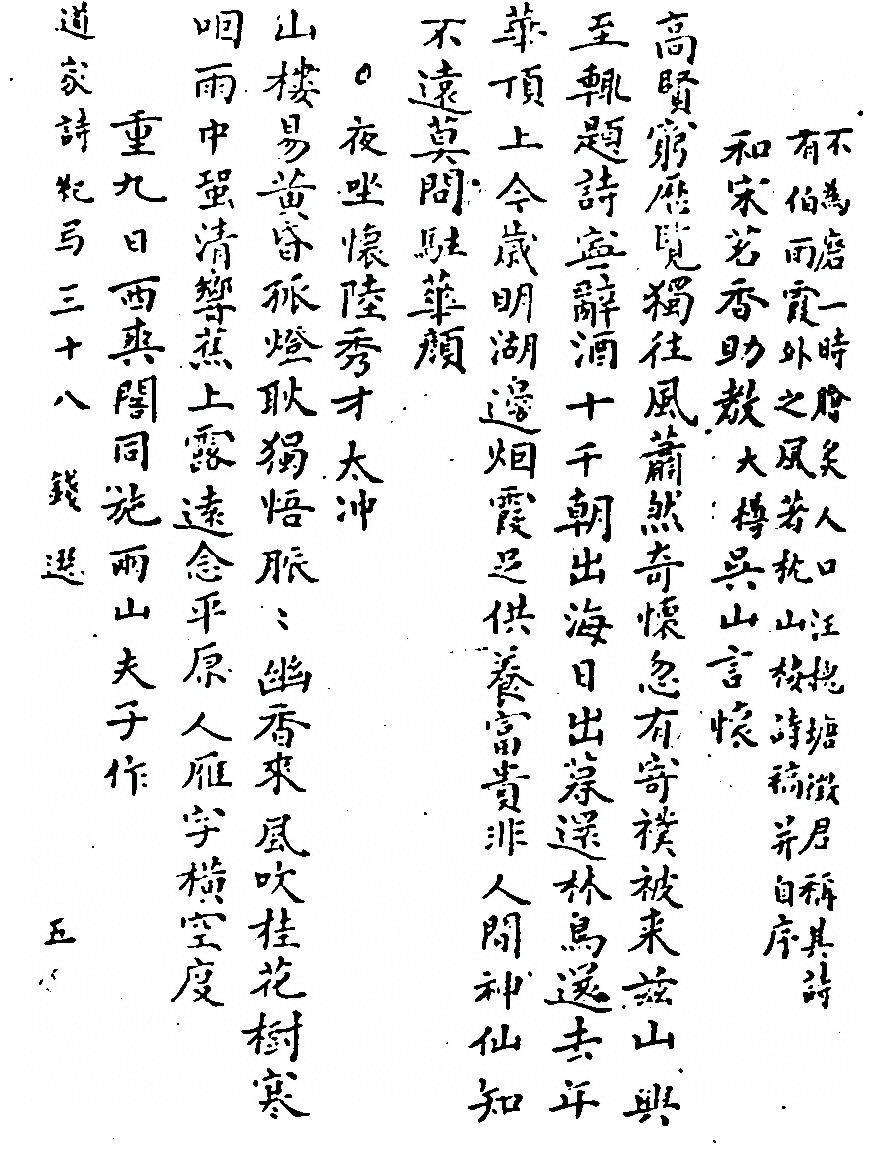 不為磨一時膾炙人口汪槐塘徵君稱其詩
有伯雨霞外之風著枕山楼詩稿并自序
和宋茗香助教大樽吳山言懷
高賢窮歷覽獨往風蕭然奇懷忽有寄襆被来兹山興
至輒題詩寧辭酒十千朝出海日出暮還林鳥還去年
華頂上今歲明湖邊烟霞足供養富貴非人間神仙知
不遠莫問駐華顏
○夜坐懷陸秀才太冲
山樓易黄昏孤燈耿獨悟脈〻幽香來風吹桂花樹寒
咽雨中蛩清響蕉上露遠念平原人雁字橫空度
重九日西爽閣同施雨山夫子作
道家詩紀 三十八 錢選 五